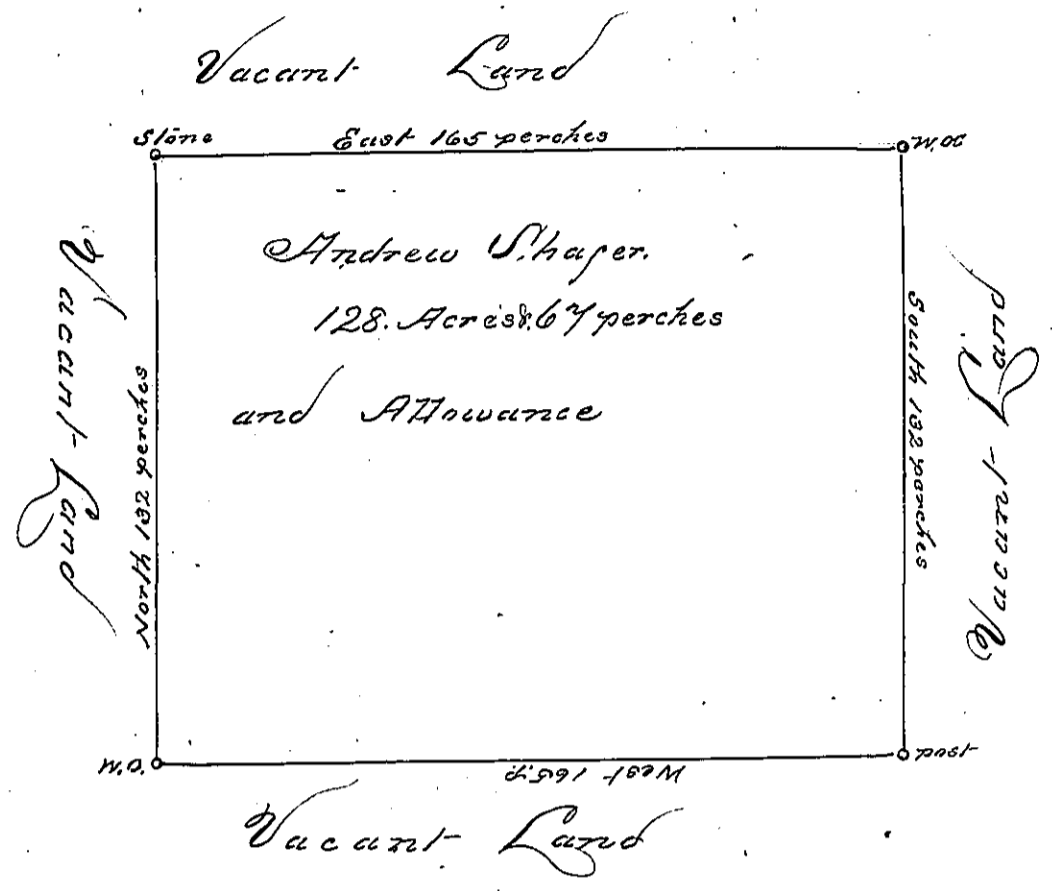 Vacant Land
Stone
East 165 perches
W.oa
Andrew Shafer.
128. Acres & 67 perches
and Allowance
Vacant Land
North 132 perches
South 132 perches
Vacant Land
W.O.
West 165.p.
Post
Vacant Land